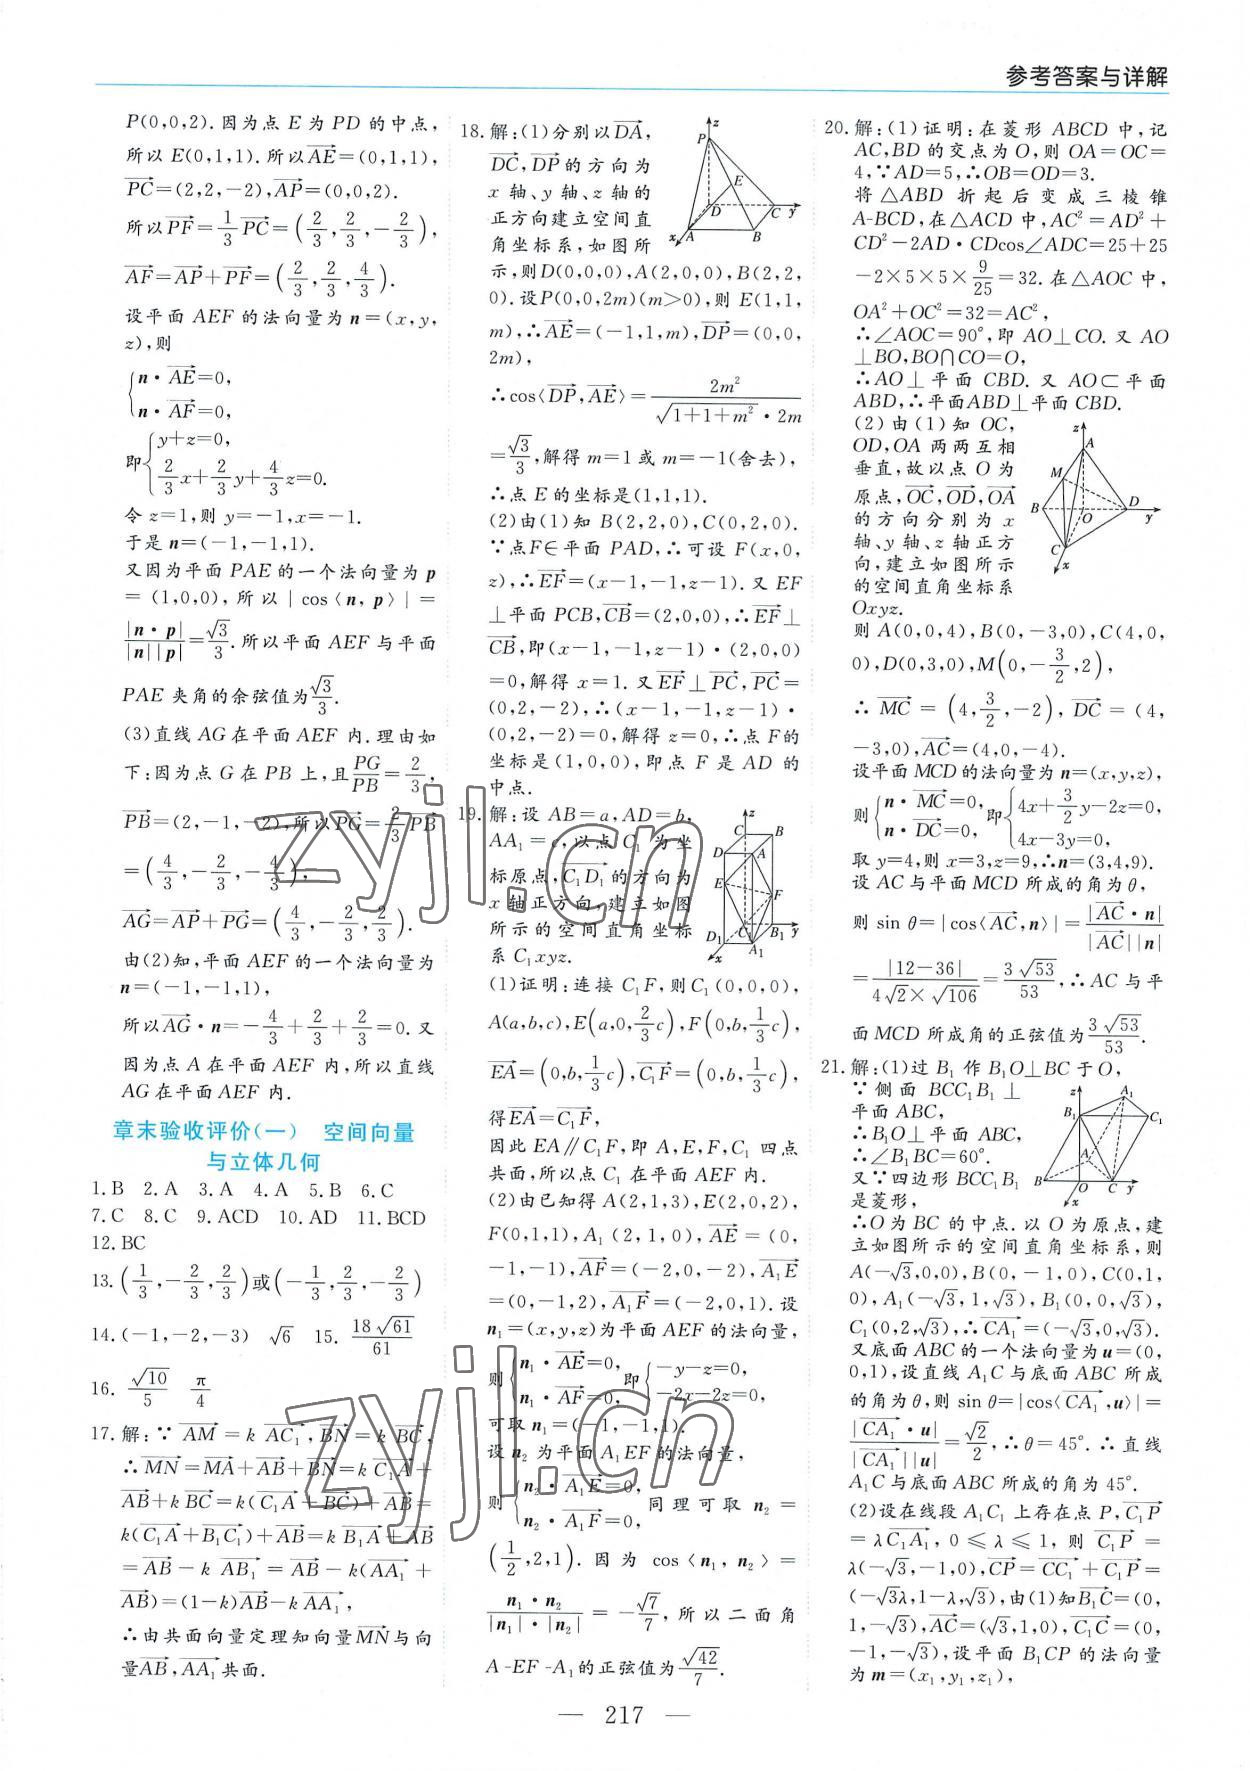 参考答案与详解
P(0,0,2).因为点 E 为 PD 的中点,
所以 E(0,1,1).所以$\overrightarrow{AE}$=(0,1,1),
$\overrightarrow{PC}$=(2,2,-2),$\overrightarrow{AP}$=(0,0,2).
所以$\overrightarrow{PF}=\frac{1}{3}\overrightarrow{PC}=\left(\frac{2}{3},\frac{2}{3},-\frac{2}{3}\right)$,
$\overrightarrow{AF}=\overrightarrow{AP}+\overrightarrow{PF}=\left(\frac{2}{3},\frac{2}{3},\frac{4}{3}\right)$.
设平面 AEF 的法向量为 n=(x,y,
z),则
$\begin{cases}n\cdot\overrightarrow{AE}=0,\\n\cdot\overrightarrow{AF}=0,\end{cases}$
即$\begin{cases}y+z=0,\\\frac{2}{3}x+\frac{2}{3}y+\frac{4}{3}z=0.\end{cases}$
令 z=1,则 y=-1,x=-1.
于是 n=(-1,-1,1).
又因为平面 PAE 的一个法向量为 p
=(1,0,0),所以|cos⟨n,p⟩|=
$\frac{|n\cdot p|}{|n||p|}=\frac{\sqrt{3}}{3}$.所以平面 AEF 与平面
PAE 夹角的余弦值为$\frac{\sqrt{3}}{3}$.
(3)直线 AG 在平面 AEF 内.理由如
下:因为点 G 在 PB 上,且$\frac{PG}{PB}=\frac{2}{3}$,
$\overrightarrow{PB}$=(2,-1,-2),所以$\overrightarrow{PG}=\frac{2}{3}\overrightarrow{PB}$
$=\left(\frac{4}{3},-\frac{2}{3},-\frac{4}{3}\right)$,
$\overrightarrow{AG}=\overrightarrow{AP}+\overrightarrow{PG}=\left(\frac{4}{3},-\frac{2}{3},\frac{2}{3}\right)$.
由(2)知,平面 AEF 的一个法向量为
n=(-1,-1,1),
所以$\overrightarrow{AG}\cdot n=-\frac{4}{3}+\frac{2}{3}+\frac{2}{3}=0$.又
因为点 A 在平面 AEF 内,所以直线
AG 在平面 AEF 内.
章末验收评价(一) 空间向量
与立体几何
1.B 2.A 3.A 4.A 5.B 6.C
7.C 8.C 9.ACD 10.AD 11.BCD
12.BC
13.$\left(\frac{1}{3},-\frac{2}{3},\frac{2}{3}\right)$或$\left(-\frac{1}{3},\frac{2}{3},-\frac{2}{3}\right)$
14.(-1,-2,-3) $\sqrt{6}$ 15.$\frac{18\sqrt{61}}{61}$
16.$\frac{\sqrt{10}}{5}$ $\frac{\pi}{4}$
17.解:∵$\overrightarrow{AM}=k\overrightarrow{AC_1}$,$\overrightarrow{BN}=k\overrightarrow{BC}$,
∴$\overrightarrow{MN}=\overrightarrow{MA}+\overrightarrow{AB}+\overrightarrow{BN}=k\overrightarrow{C_1A}+$
$\overrightarrow{AB}+k\overrightarrow{BC}=k(\overrightarrow{C_1A}+\overrightarrow{BC})+\overrightarrow{AB}=$
$k(\overrightarrow{C_1A}+\overrightarrow{B_1C_1})+\overrightarrow{AB}=k\overrightarrow{B_1A}+\overrightarrow{AB}$
$=\overrightarrow{AB}-k\overrightarrow{AB_1}=\overrightarrow{AB}-k(\overrightarrow{AA_1}+$
$\overrightarrow{AB})=(1-k)\overrightarrow{AB}-k\overrightarrow{AA_1}$,
∴由共面向量定理知向量$\overrightarrow{MN}$与向
量$\overrightarrow{AB}$,$\overrightarrow{AA_1}$共面.
18.解:(1)分别以$\overrightarrow{DA}$,
$\overrightarrow{DC}$,$\overrightarrow{DP}$的方向为
x 轴、y 轴、z 轴的
正方向建立空间直
角坐标系,如图所
z P E D C y A B x
示,则D(0,0,0),A(2,0,0),B(2,2,
0).设P(0,0,2m)(m>0),则 E(1,1,
m),∴$\overrightarrow{AE}$=(-1,1,m),$\overrightarrow{DP}$=(0,0,
2m),
∴cos⟨$\overrightarrow{DP}$,$\overrightarrow{AE}$⟩=$\frac{2m^2}{\sqrt{1+1+m^2}\cdot 2m}$
$=\frac{\sqrt{3}}{3}$,解得 m=1 或 m=-1(舍去),
∴点 E 的坐标是(1,1,1).
(2)由(1)知 B(2,2,0),C(0,2,0).
∵点F∈平面 PAD,∴可设 F(x,0,
z),∴$\overrightarrow{EF}$=(x-1,-1,z-1).又 EF
⊥平面 PCB,$\overrightarrow{CB}$=(2,0,0),∴$\overrightarrow{EF}$⊥
$\overrightarrow{CB}$,即(x-1,-1,z-1)·(2,0,0)
=0,解得 x=1.又$\overrightarrow{EF}$⊥$\overrightarrow{PC}$,$\overrightarrow{PC}$=
(0,2,-2),∴(x-1,-1,z-1)·
(0,2,-2)=0,解得 z=0,∴点 F的
坐标是(1,0,0),即点 F 是 AD 的
中点.
19.解:设 AB=a,AD=b,
AA₁=c,以点 C₁ 为坐
标原点,$\overrightarrow{C_1D_1}$的方向为
x 轴正方向,建立如图
所示的空间直角坐标
系 C₁xyz.
z C B D A E F D₁ C₁ B₁ y x A₁
(1)证明:连接 C₁F,则C₁(0,0,0),
A(a,b,c),$E\left(a,0,\frac{2}{3}c\right)$,$F\left(0,b,\frac{1}{3}c\right)$,
$\overrightarrow{EA}=\left(0,b,\frac{1}{3}c\right)$,$\overrightarrow{C_1F}=\left(0,b,\frac{1}{3}c\right)$,
得$\overrightarrow{EA}=\overrightarrow{C_1F}$,
因此 EA∥C₁F,即 A,E,C₁,F 四点
共面,所以点 C₁ 在平面 AEF 内.
(2)由已知得 A(2,1,3),E(2,0,2),
F(0,1,1),A₁(2,1,0),$\overrightarrow{AE}$=(0,
-1,-1),$\overrightarrow{AF}$=(-2,0,-2),$\overrightarrow{A_1E}$
=(0,-1,2),$\overrightarrow{A_1F}$=(-2,0,1).设
n₁=(x,y,z)为平面 AEF 的法向量,
则$\begin{cases}n_1\cdot\overrightarrow{AE}=0,\\n_1\cdot\overrightarrow{AF}=0,\end{cases}$即$\begin{cases}-y-z=0,\\-2x-2z=0,\end{cases}$
可取 n₁=(-1,-1,1).
设 n₂ 为平面 A₁EF 的法向量,
则$\begin{cases}n_2\cdot\overrightarrow{A_1E}=0,\\n_2\cdot\overrightarrow{A_1F}=0,\end{cases}$同理可取 n₂=
$\left(\frac{1}{2},2,1\right)$.因为 cos⟨n₁,n₂⟩=
$\frac{n_1\cdot n_2}{|n_1|\cdot|n_2|}=-\frac{\sqrt{7}}{7}$,所以二面角
A-EF-A₁的正弦值为$\frac{\sqrt{42}}{7}$.
20.解:(1)证明:在菱形 ABCD 中,记
AC,BD 的交点为 O,则 OA=OC=
4,∵AD=5,∴OB=OD=3.
将△ABD 折起后变成三棱锥
A-BCD,在△ACD 中,AC²=AD²+
CD²-2AD·CDcos∠ADC=25+25
$-2×5×5×\frac{9}{25}=32$.在△AOC 中,
OA²+OC²=32=AC²,
∴∠AOC=90°,即 AO⊥CO.又 AO
⊥BO,BO∩CO=O,
∴AO⊥平面 CBD.又 AO⊂平面
ABD,∴平面ABD⊥平面 CBD.
(2)由(1)知 OC,
OD,OA 两两互相
垂直,故以点 O 为
原点,$\overrightarrow{OC}$,$\overrightarrow{OD}$,$\overrightarrow{OA}$
的方向分别为 x
轴、y 轴、z 轴正方
向,建立如图所示
的空间直角坐标系
Oxyz.
z A M B O D y C x
则 A(0,0,4),B(0,-3,0),C(4,0,
0),D(0,3,0),$M\left(0,-\frac{3}{2},2\right)$,
∴$\overrightarrow{MC}=\left(4,\frac{3}{2},-2\right)$,$\overrightarrow{DC}$=(4,
-3,0),$\overrightarrow{AC}$=(4,0,-4).
设平面 MCD的法向量为 n=(x,y,z),
则$\begin{cases}n\cdot\overrightarrow{MC}=0,\\n\cdot\overrightarrow{DC}=0,\end{cases}$即$\begin{cases}4x+\frac{3}{2}y-2z=0,\\4x-3y=0.\end{cases}$
取 y=4,则 x=3,z=9,∴n=(3,4,9).
设 AC 与平面 MCD 所成的角为 θ,
则 sin θ=|cos⟨$\overrightarrow{AC}$,n⟩|=$\frac{|\overrightarrow{AC}\cdot n|}{|\overrightarrow{AC}||n|}$
$=\frac{|12-36|}{4\sqrt{2}×\sqrt{106}}=\frac{3\sqrt{53}}{53}$,∴AC 与平
面 MCD 所成角的正弦值为$\frac{3\sqrt{53}}{53}$.
21.解:(1)过 B₁ 作 B₁O⊥BC 于 O,
∵侧面 BCC₁B₁⊥
平面 ABC,
∴B₁O⊥平面 ABC,
∴∠B₁BC=60°.
又∵四边形 BCC₁B₁
是菱形,
z A₁ B₁ C₁ A B O C y x
∴O 为 BC 的中点.以 O 为原点,建
立如图所示的空间直角坐标系,则
A(-√3,0,0),B(0,-1,0),C(0,1,
0),A₁(-√3,1,√3),B₁(0,0,√3),
C₁(0,2,√3),∴$\overrightarrow{CA_1}$=(-√3,0,√3).
又底面 ABC 的一个法向量为 u=(0,
0,1),设直线 A₁C 与底面 ABC 所成
的角为 θ,则 sin θ=|cos⟨$\overrightarrow{CA_1}$,u⟩|=
$\frac{|\overrightarrow{CA_1}\cdot u|}{|\overrightarrow{CA_1}||u|}=\frac{\sqrt{2}}{2}$,∴θ=45°.∴直线
A₁C 与底面 ABC 所成的角为 45°.
(2)设在线段 A₁C₁ 上存在点 P,$\overrightarrow{C_1P}$
=λ$\overrightarrow{C_1A_1}$,0≤λ≤1,则$\overrightarrow{C_1P}$=
λ(-√3,-1,0),$\overrightarrow{CP}=\overrightarrow{CC_1}+\overrightarrow{C_1P}$=
(-√3λ,1-λ,√3),由(1)知$\overrightarrow{B_1C}$=(0,
1,-√3),$\overrightarrow{AC}$=(√3,1,0),$\overrightarrow{C_1C}$=(0,
-1,-√3),设平面 B₁CP 的法向量
为 m=(x₁,y₁,z₁),
— 217 —
zyjl.cn
zyjl.cn